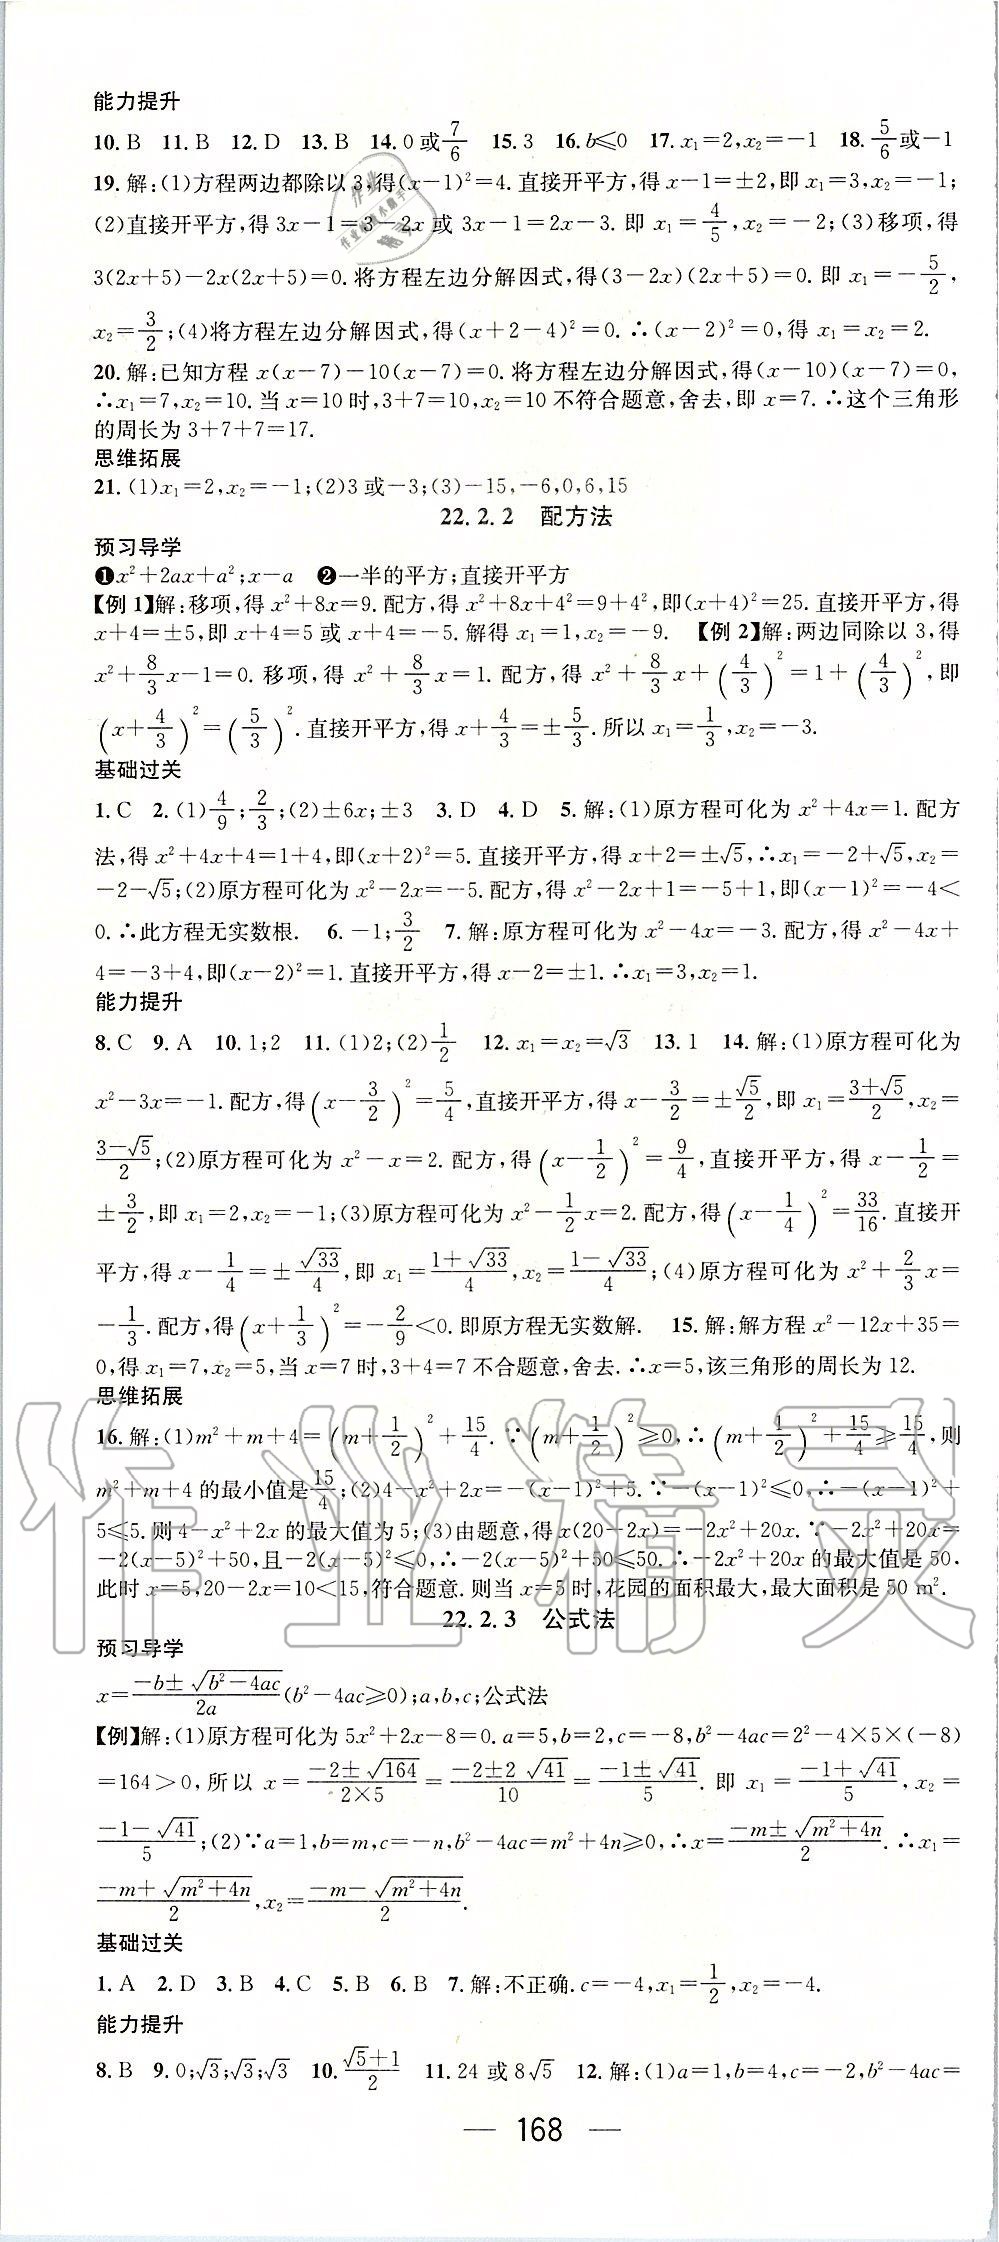 能力提升
10. B 11. B 12. D 13. B 14. 0或7/6 15. 3 16. b≤0 17. x₁=2,x₂=-1 18. 5/6或-1
19. 解:(1)方程两边都除以3,得(x-1)²=4.直接开平方,得x-1=±2,即x₁=3,x₂=-1;
(2)直接开平方,得3x-1=3-2x或3x-1=2x-3.即x₁=4/5,x₂=-2;(3)移项,得
3(2x+5)-2x(2x+5)=0.将方程左边分解因式,得(3-2x)(2x+5)=0.即x₁=-5/2,
x₂=3/2;(4)将方程左边分解因式,得(x+2-4)²=0.∴(x-2)²=0,得x₁=x₂=2.
20. 解:已知方程x(x-7)-10(x-7)=0.将方程左边分解因式,得(x-10)(x-7)=0,
∴x₁=7,x₂=10.当x=10时,3+7=10,x₂=10不符合题意,舍去,即x=7.∴这个三角形
的周长为3+7+7=17.
思维拓展
21. (1)x₁=2,x₂=-1;(2)3或-3;(3)-15,-6,0,6,15
22.2.2 配方法
预习导学
❶x²+2ax+a²;x-a ❷一半的平方;直接开平方
【例1】解:移项,得x²+8x=9.配方,得x²+8x+4²=9+4²,即(x+4)²=25.直接开平方,得
x+4=±5,即x+4=5或x+4=-5.解得x₁=1,x₂=-9. 【例2】解:两边同除以3,得
x²+8/3x-1=0.移项,得x²+8/3x=1.配方,得x²+8/3x+(4/3)²=1+(4/3)²,即
(x+4/3)²=(5/3)².直接开平方,得x+4/3=±5/3.所以x₁=1/3,x₂=-3.
基础过关
1. C 2. (1)4/9;2/3;(2)±6x;±3 3. D 4. D 5. 解:(1)原方程可化为x²+4x=1.配方
法,得x²+4x+4=1+4,即(x+2)²=5.直接开平方,得x+2=±√5,∴x₁=-2+√5,x₂=
-2-√5;(2)原方程可化为x²-2x=-5.配方,得x²-2x+1=-5+1,即(x-1)²=-4<
0.∴此方程无实数根. 6. -1;3/2 7. 解:原方程可化为x²-4x=-3.配方,得x²-4x+
4=-3+4,即(x-2)²=1.直接开平方,得x-2=±1.∴x₁=3,x₂=1.
能力提升
8. C 9. A 10. 1;2 11. (1)2;(2)1/2 12. x₁=x₂=√3 13. 1 14. 解:(1)原方程可化为
x²-3x=-1.配方,得(x-3/2)²=5/4,直接开平方,得x-3/2=±√5/2,即x₁=(3+√5)/2,x₂=
(3-√5)/2;(2)原方程可化为x²-x=2.配方,得(x-1/2)²=9/4,直接开平方,得x-1/2=
±3/2,即x₁=2,x₂=-1;(3)原方程可化为x²-1/2x=2.配方,得(x-1/4)²=33/16.直接开
平方,得x-1/4=±√33/4,即x₁=(1+√33)/4,x₂=(1-√33)/4;(4)原方程可化为x²+2/3x=
-1/3.配方,得(x+1/3)²=-2/9<0.即原方程无实数解. 15. 解:解方程x²-12x+35=
0,得x₁=7,x₂=5,当x=7时,3+4=7不合题意,舍去.∴x=5,该三角形的周长为12.
思维拓展
16. 解:(1)m²+m+4=(m+1/2)²+15/4.∵(m+1/2)²≥0,∴(m+1/2)²+15/4≥15/4,则
m²+m+4的最小值是15/4;(2)4-x²+2x=-(x-1)²+5.∵-(x-1)²≤0,∴-(x-1)²+
5≤5.则4-x²+2x的最大值为5;(3)由题意,得x(20-2x)=-2x²+20x.∵-2x²+20x=
-2(x-5)²+50,且-2(x-5)²≤0,∴-2(x-5)²+50≤50.∴-2x²+20x的最大值是50.
此时x=5,20-2x=10<15,符合题意.则当x=5时,花园的面积最大,最大面积是50 m².
22.2.3 公式法
预习导学
x=(-b±√(b²-4ac))/2a(b²-4ac≥0);a,b,c;公式法
【例】解:(1)原方程可化为5x²+2x-8=0.a=5,b=2,c=-8,b²-4ac=2²-4×5×(-8)
=164>0,所以x=(-2±√164)/(2×5)=(-2±2√41)/10=(-1±√41)/5.即x₁=(-1+√41)/5,x₂=
(-1-√41)/5;(2)∵a=1,b=m,c=-n,b²-4ac=m²+4n≥0,∴x=(-m±√(m²+4n))/2.∴x₁=
(-m+√(m²+4n))/2,x₂=(-m-√(m²+4n))/2.
基础过关
1. A 2. D 3. B 4. C 5. B 6. B 7. 解:不正确.c=-4,x₁=1/2,x₂=-4.
能力提升
8. B 9. 0;√3;√3;√3 10. (√5+1)/2 11. 24或8√5 12. 解:(1)a=1,b=4,c=-2,b²-4ac=
— 168 —
作业精灵